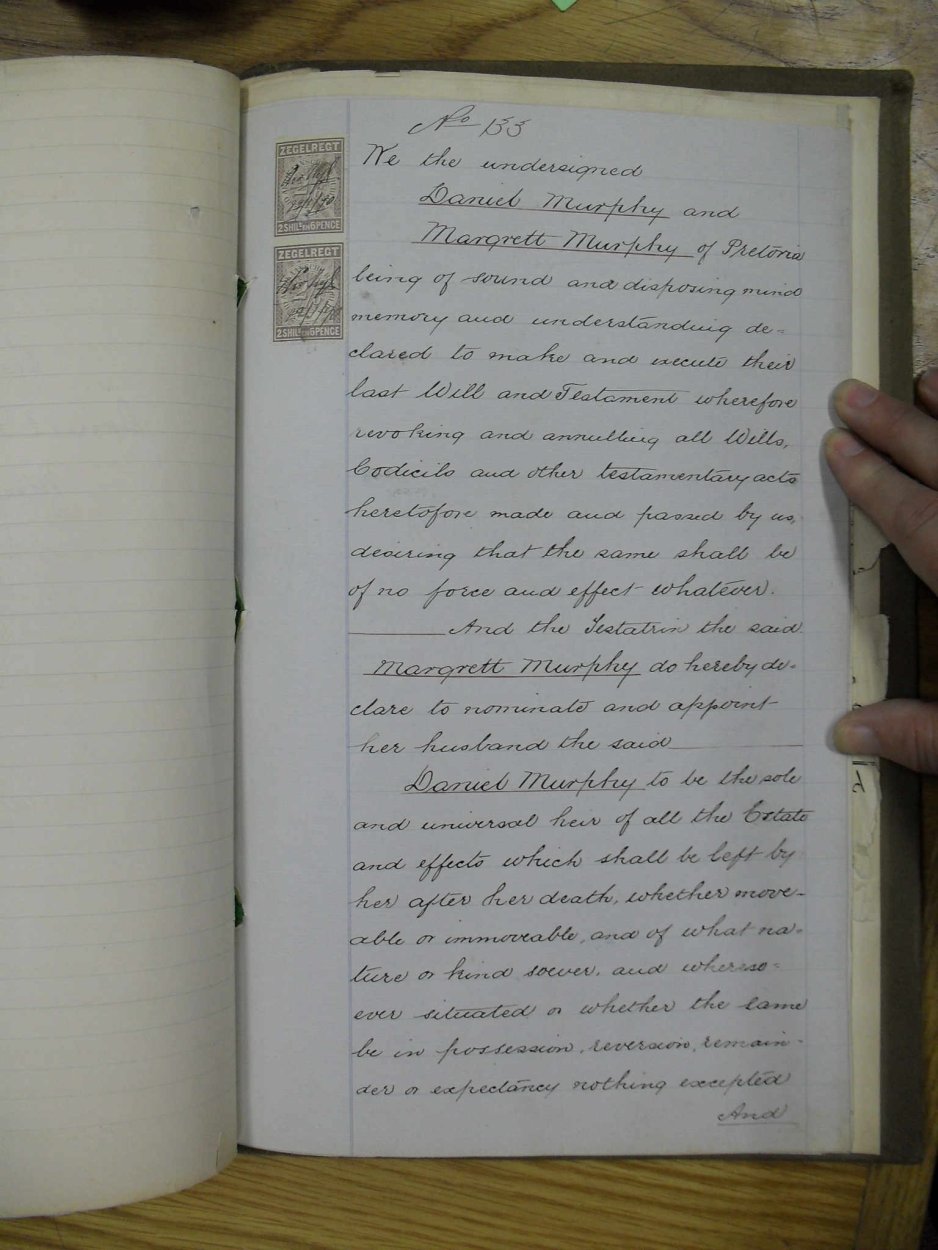 No 133
ZEGELREGT
2 SHILs EN 6 PENCE
ZEGELREGT
2 SHILs EN 6 PENCE
We the undersigned
Daniel Murphy and
Margrett Murphy of Pretoria
being of sound and disposing mind
memory and understanding de=
clared to make and execute their
last Will and Testament wherefore
revoking and annulling all Wills,
Codicils and other testamentary acts
heretofore made and passed by us,
desiring that the same shall be
of no force and effect whatever.
And the Testatrix the said
Margrett Murphy do hereby de=
clare to nominate and appoint
her husband the said
Daniel Murphy to be the sole
and universal heir of all the Estate
and effects which shall be left by
her after her death, whether move-
able or immoveable, and of what na=
ture or kind soever, and whereso=
ever situated or whether the same
be in possession, reversion, remain-
der or expectancy nothing excepted
And